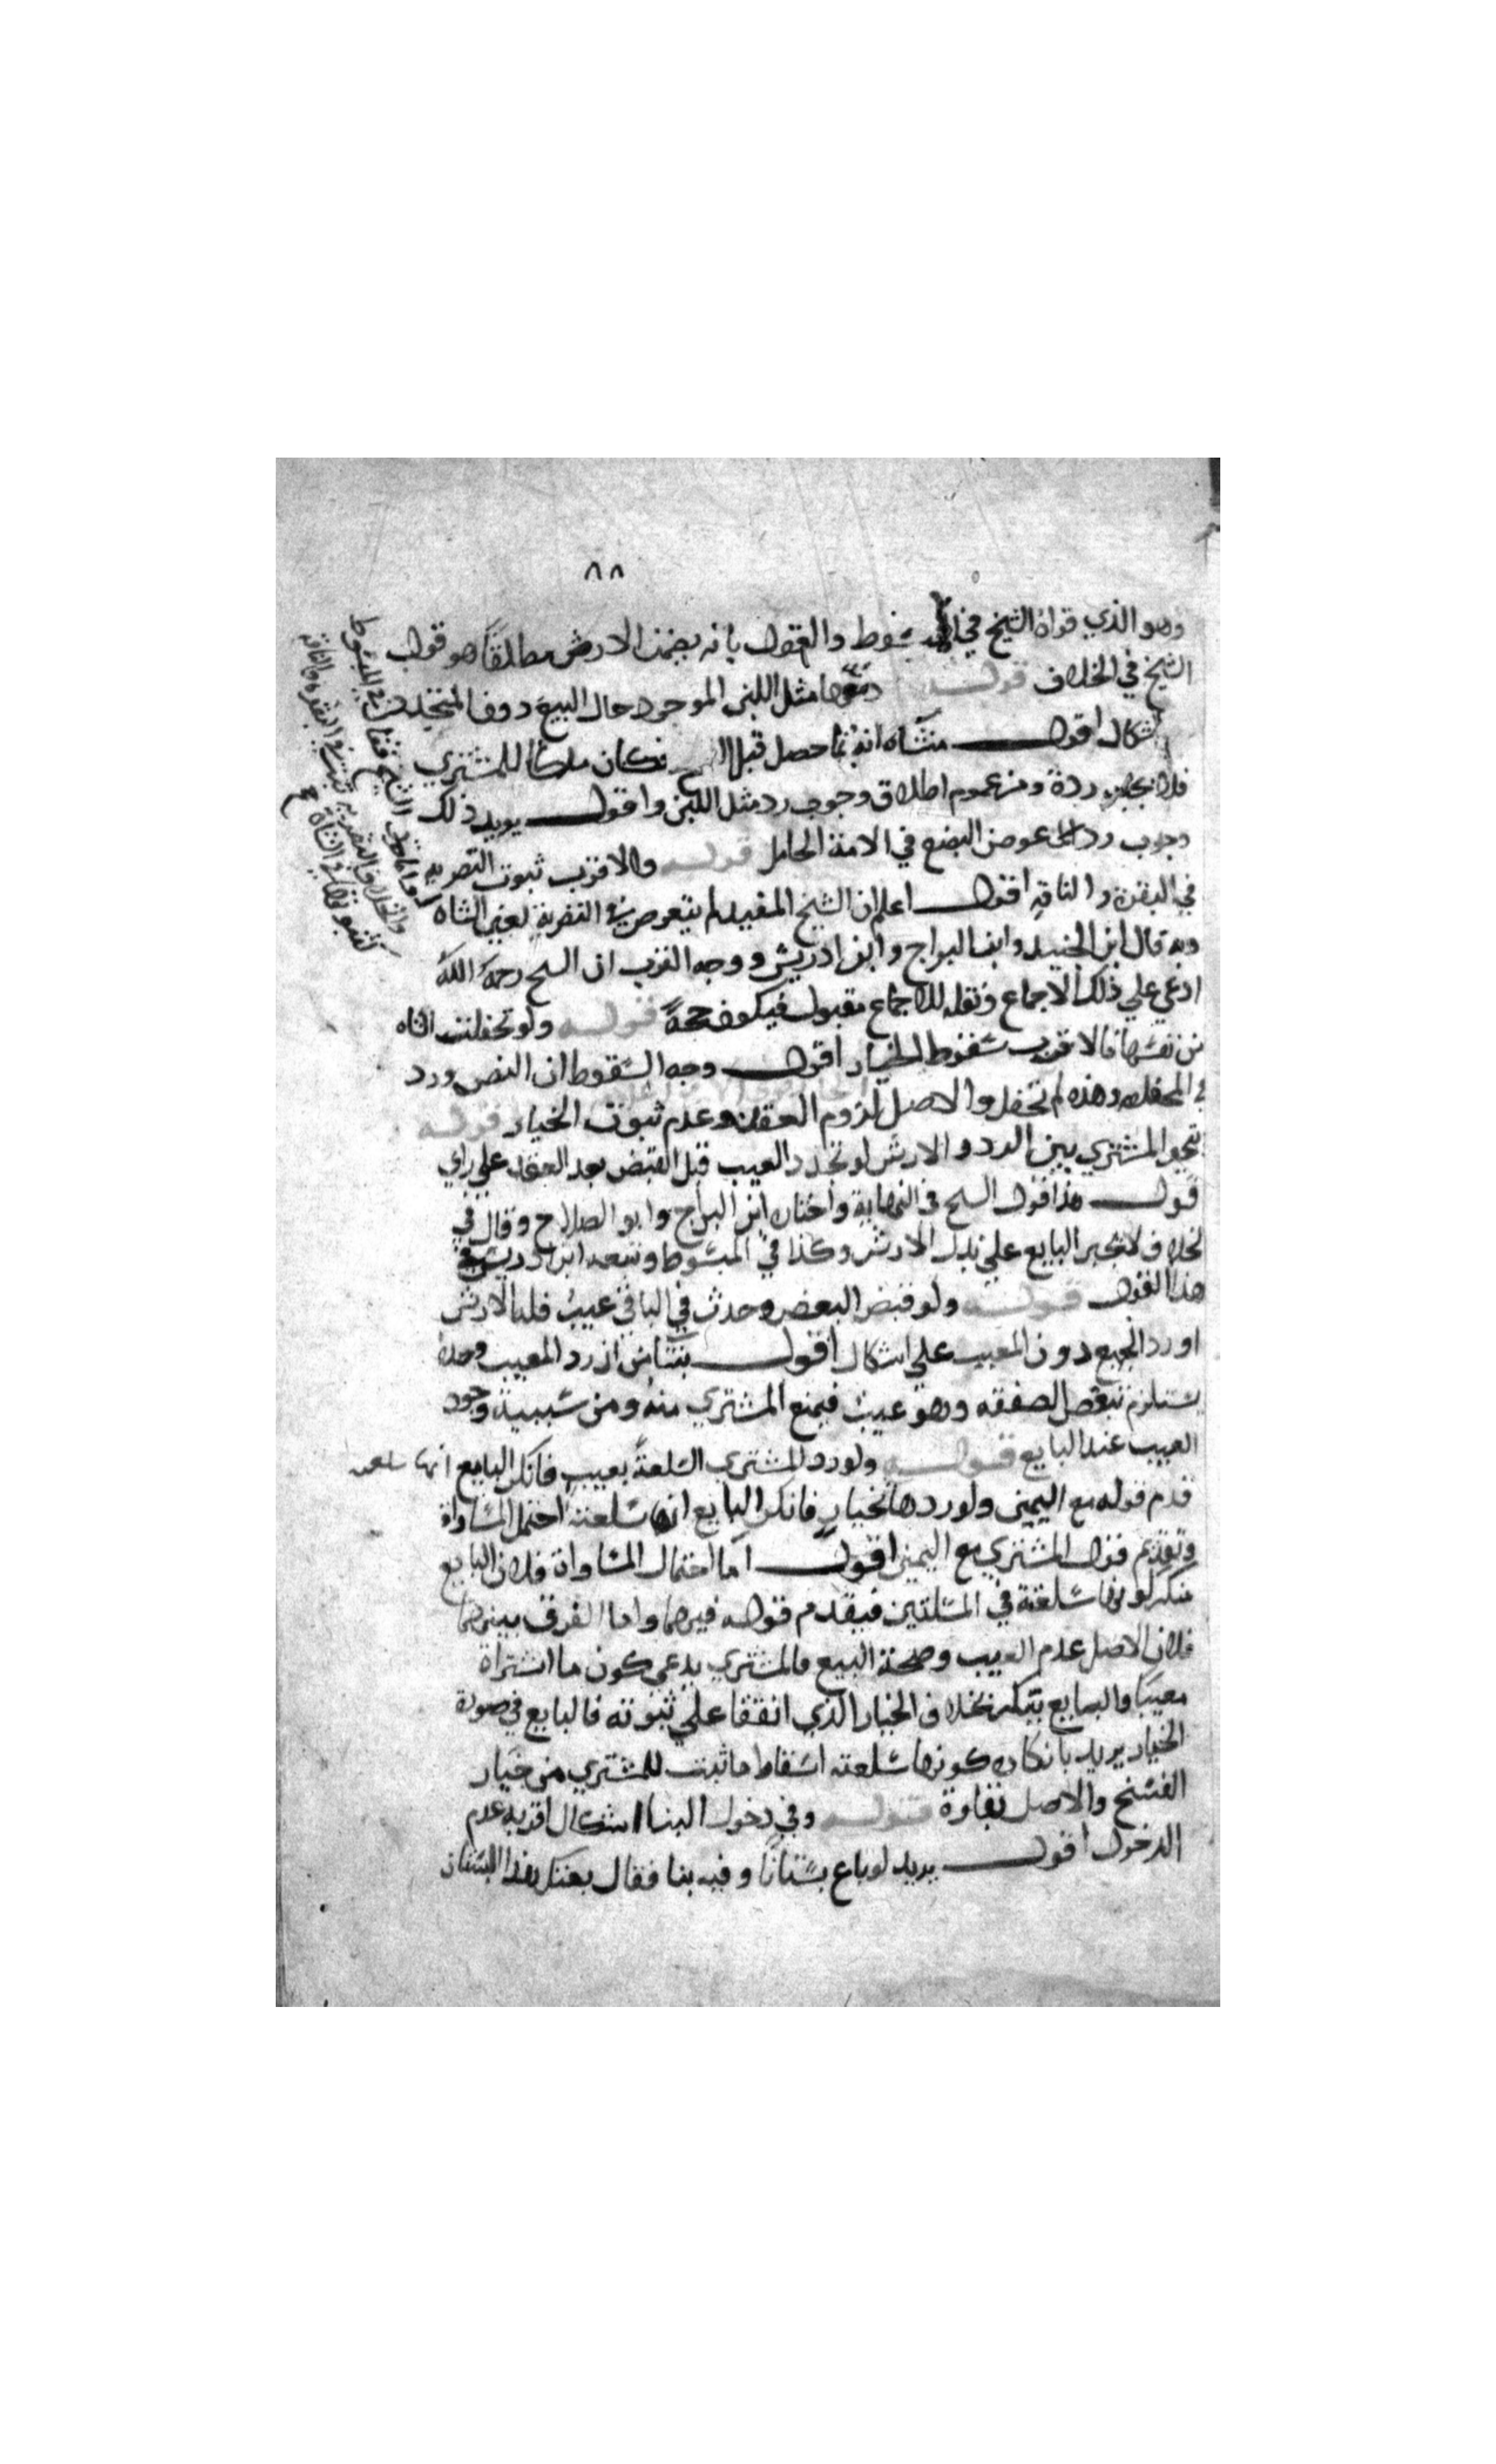 ٨٨
وهو الذي قواه الشيخ في المبسوط والقول بانه يضمن الارش مطلقا هو قول
الشيخ في الخلاف قوله دفعها مثل اللبن الموجود حال البيع دون المتجدد
اشكال اقول منشاه انه نما حصل قبل فكان ملكا للمشتري
فلا يجب رده ومن عموم اطلاق وجوب رد مثل اللبن واقول يويد ذلك
وجوب رد عوض البضع في الامة الحامل قوله والاقرب ثبوت التصرية
في البقرة والناقة اقول اعلم ان الشيخ المفيد لم يتعرض في التصرية لغير الشاه
وبه قال ابن الجنيد وابن البراج وابن ادريس ووجه القرب ان الشيخ رحمه الله
ادعي علي ذلك الاجماع ونقله للاجماع مقبول فيكون حجة قوله ولو تحفلت الشاه
من نفسها فالاقرب سقوط الخيار اقول وجه السقوط ان النص ورد
في المحفلة وهذه لم تحفل والاصل لزوم العقد وعدم ثبوت الخيار قوله
يتخير المشتري بين الرد والارش لو تجدد العيب قبل القبض بعد العقد علي راي
قول هذا قول الشيخ في النهاية واختاره ابن البراج وابو الصلاح وقال في
الخلاف لا يجبر البايع علي بذل الارش وكذا في المبسوط وتبعه ابن ادريس في
هذا القول قوله ولو قبض البعض وحدث في الباقي عيب فله الارش
او رد الجميع دون المعيب علي اشكال اقول ينشا من ان رد المعيب وحده
يستلزم تبعض الصفقه وهو عيب فيمنع المشتري منه ومن سببية وجود
العيب عند البايع قوله ولو رد المشتري السلعة بعيب فانكر البايع انها سلعته
قدم قوله مع اليمين ولو ردها بخيار فانكر البايع انها سلعته احتمل المساواة
وتقديم قول المشتري مع اليمين اقول اما احتمال المساواة فلان البايع
منكر لكونها سلعته في المسلتين فيقدم قوله فيهما واما الفرق بينهما
فلان الاصل عدم العيب وصحة البيع فالمشتري يدعي كون ما اشتراه
معيبا والبايع ينكر بخلاف الخيار الذي اتفقا علي ثبوته فالبايع في صورة
الخيار يريد بانكاره كونها سلعته اسقاط ما ثبت للمشتري من خيار
الفسخ والاصل بقاوه قوله وفي دخول البنا اشكال اقربه عدم
الدخول اقول يريد لو باع بستانا وفيه بنا فقال بعتك هذا البستان
واما قول الشيخ فقال في المبسوط
والخلاف التصرية تثبت في البقره والناقه
كثبوتها في الشاة